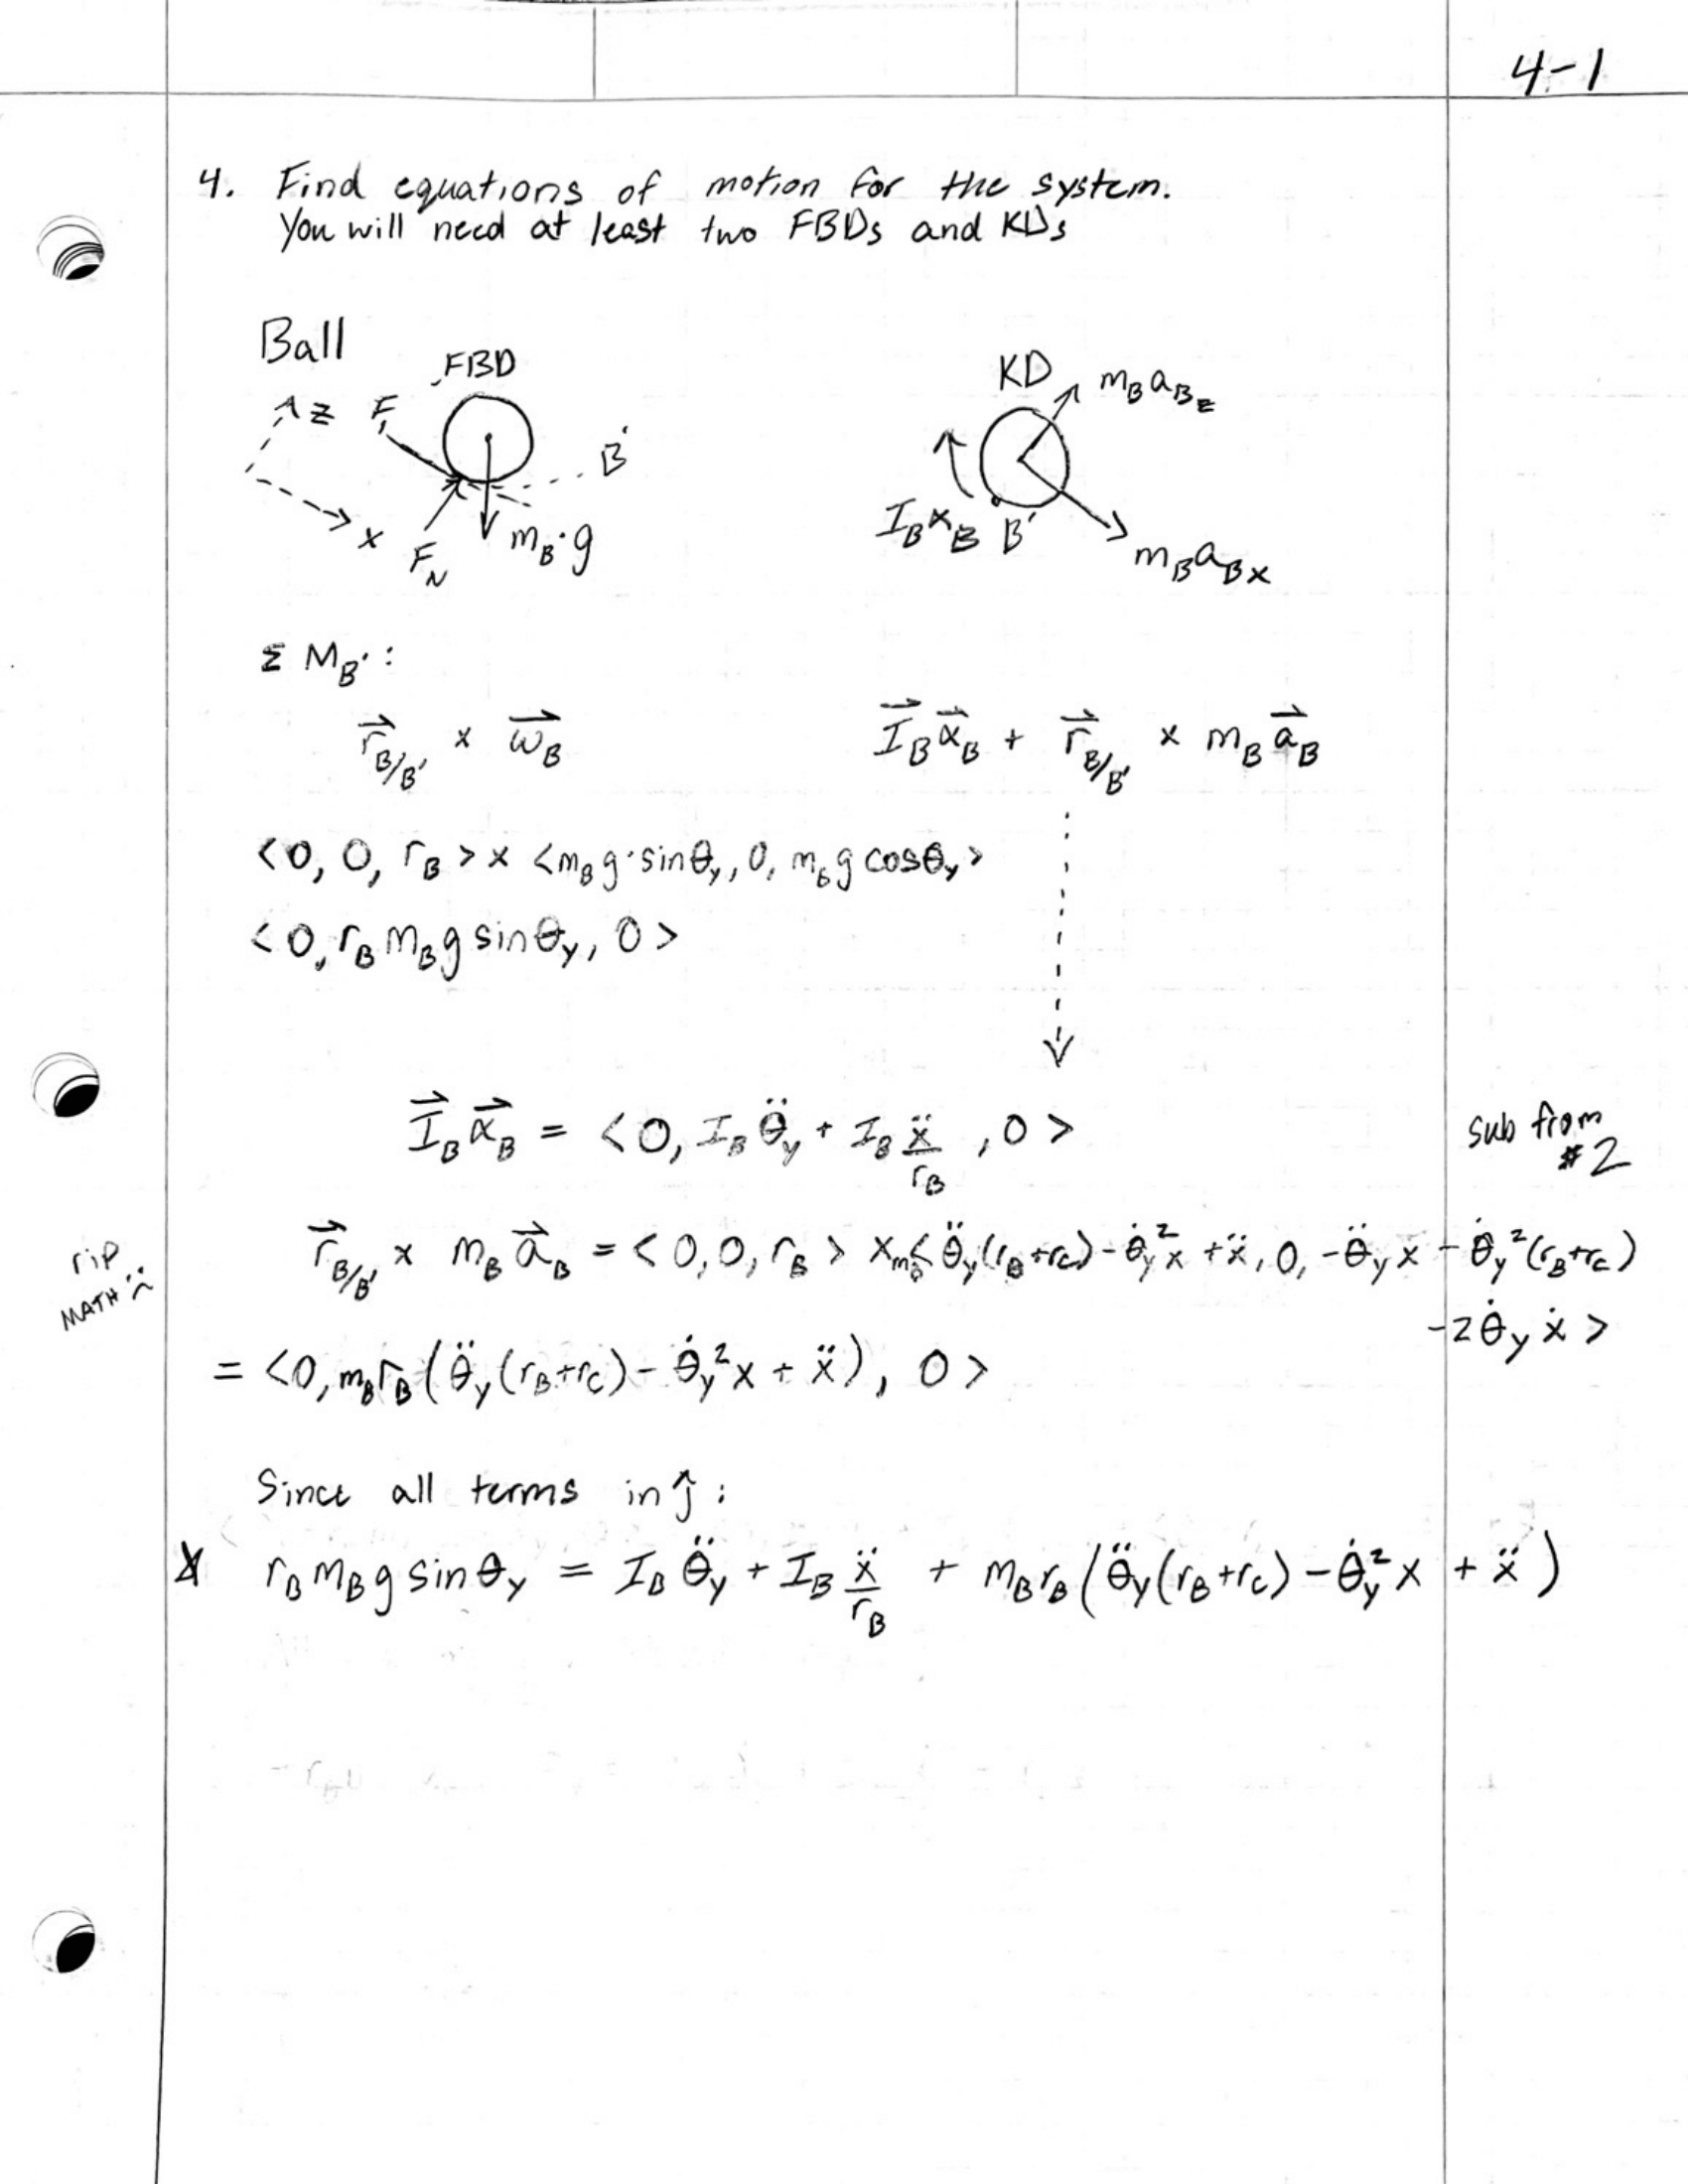 4-1
4. Find equations of motion for the system.
You will need at least two FBDs and KDs
Ball
FBD
z
F
B'
x
F_N
m_B·g
KD
m_B a_Bz
I_B α_B
B'
m_B a_Bx
Σ M_B' :
r⃗_B/B' × ω⃗_B
I⃗_B α⃗_B + r⃗_B/B' × m_B a⃗_B
<0, 0, r_B> × <m_B g·sinθ_y, 0, m_B g cosθ_y>
<0, r_B m_B g sinθ_y, 0>
I⃗_B α⃗_B = <0, I_B θ̈_y + I_B ẍ/r_B, 0>
sub from
#2
rip
MATH :(
r⃗_B/B' × m_B a⃗_B = <0,0, r_B> × m_B<θ̈_y(r_B+r_c) - θ̇_y²x + ẍ, 0, -θ̈_y x - θ̇_y²(r_B+r_c)
-2θ̇_y ẋ>
= <0, m_B r_B(θ̈_y(r_B+r_c) - θ̇_y²x + ẍ), 0>
Since all terms in ĵ :
r_B m_B g sinθ_y = I_B θ̈_y + I_B ẍ/r_B + m_B r_B(θ̈_y(r_B+r_c) - θ̇_y²x + ẍ)